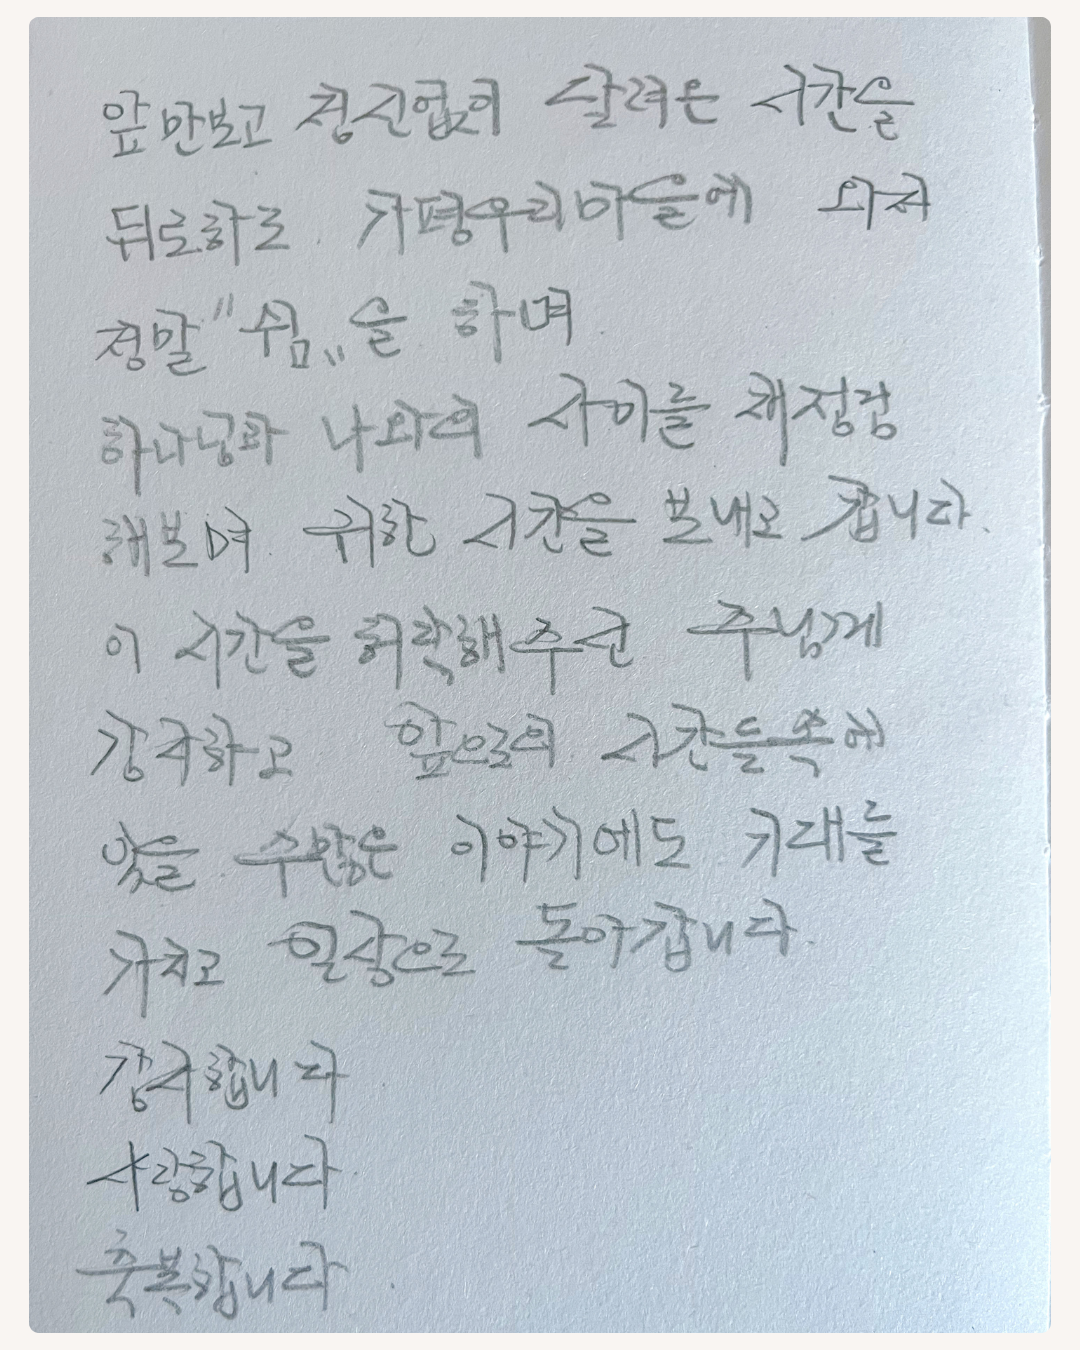 앞만보고 정신없이 달려온 시간을
뒤로하고 가평우리마을에 와서
정말 "쉼"을 하며
하나님과 나와의 사이를 재점검
해보며 귀한 시간을 보내고 갑니다.
이 시간을 허락해주신 주님께
감사하고 앞으로의 시간들속에
있을 수많은 이야기에도 기대를
가지고 일상으로 돌아갑니다.
감사합니다
사랑합니다.
축복합니다.